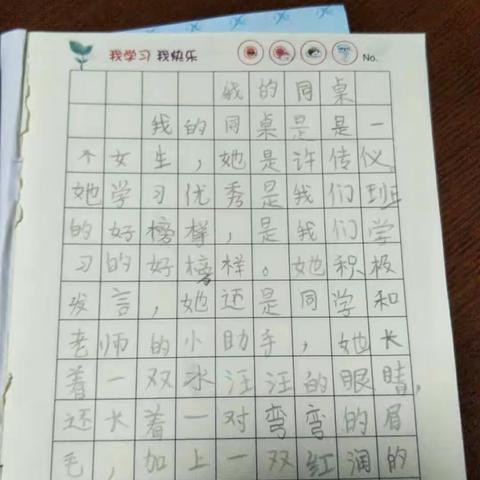 我学习 我快乐
No.
我的同桌
我的同桌是是一
个女生，她是许传仪。
她学习优秀是我们班
的好榜样，是我们学
习的好榜样。她积极
发言，她还是同学和
老师的小助手，她长
着一双水汪汪的眼睛，
还长着一对弯弯的眉
毛，加上一双红润的